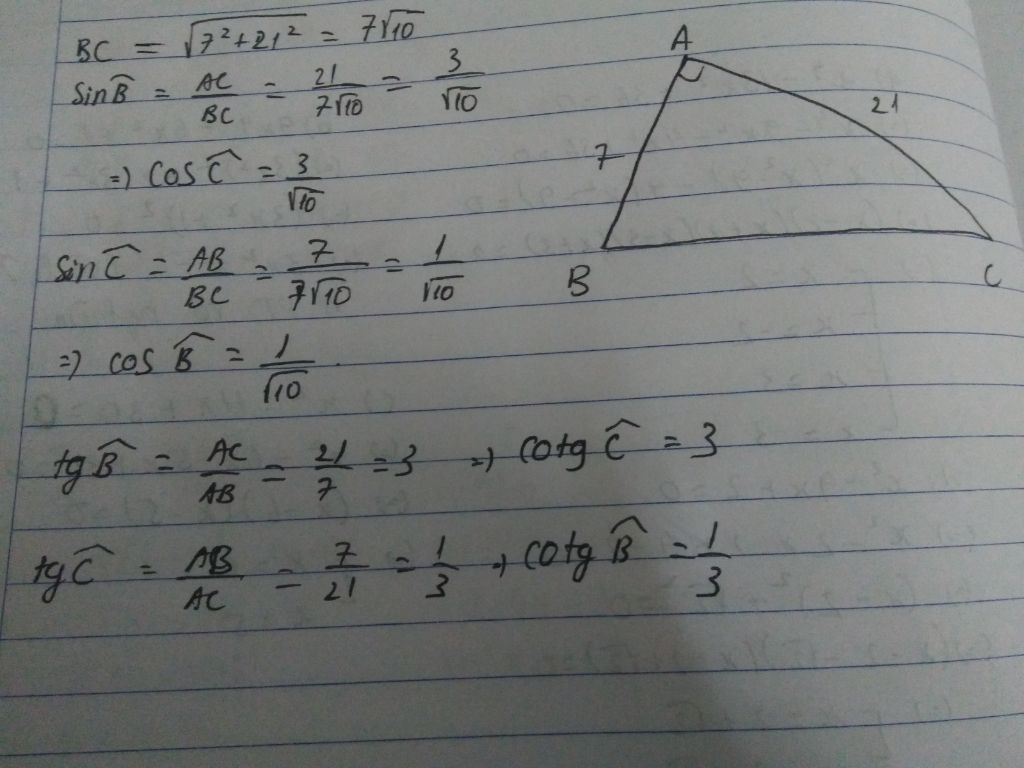 BC = √(7²+21²) = 7√10
Sin B̂ = AC/BC = 21/7√10 = 3/√10
=) cos Ĉ = 3/√10
Sin Ĉ = AB/BC = 7/7√10 = 1/√10
=) cos B̂ = 1/√10
tg B̂ = AC/AB = 21/7 = 3 =) cotg Ĉ = 3
tg Ĉ = AB/AC = 7/21 = 1/3 =) cotg B̂ = 1/3
A
21
7
B
C